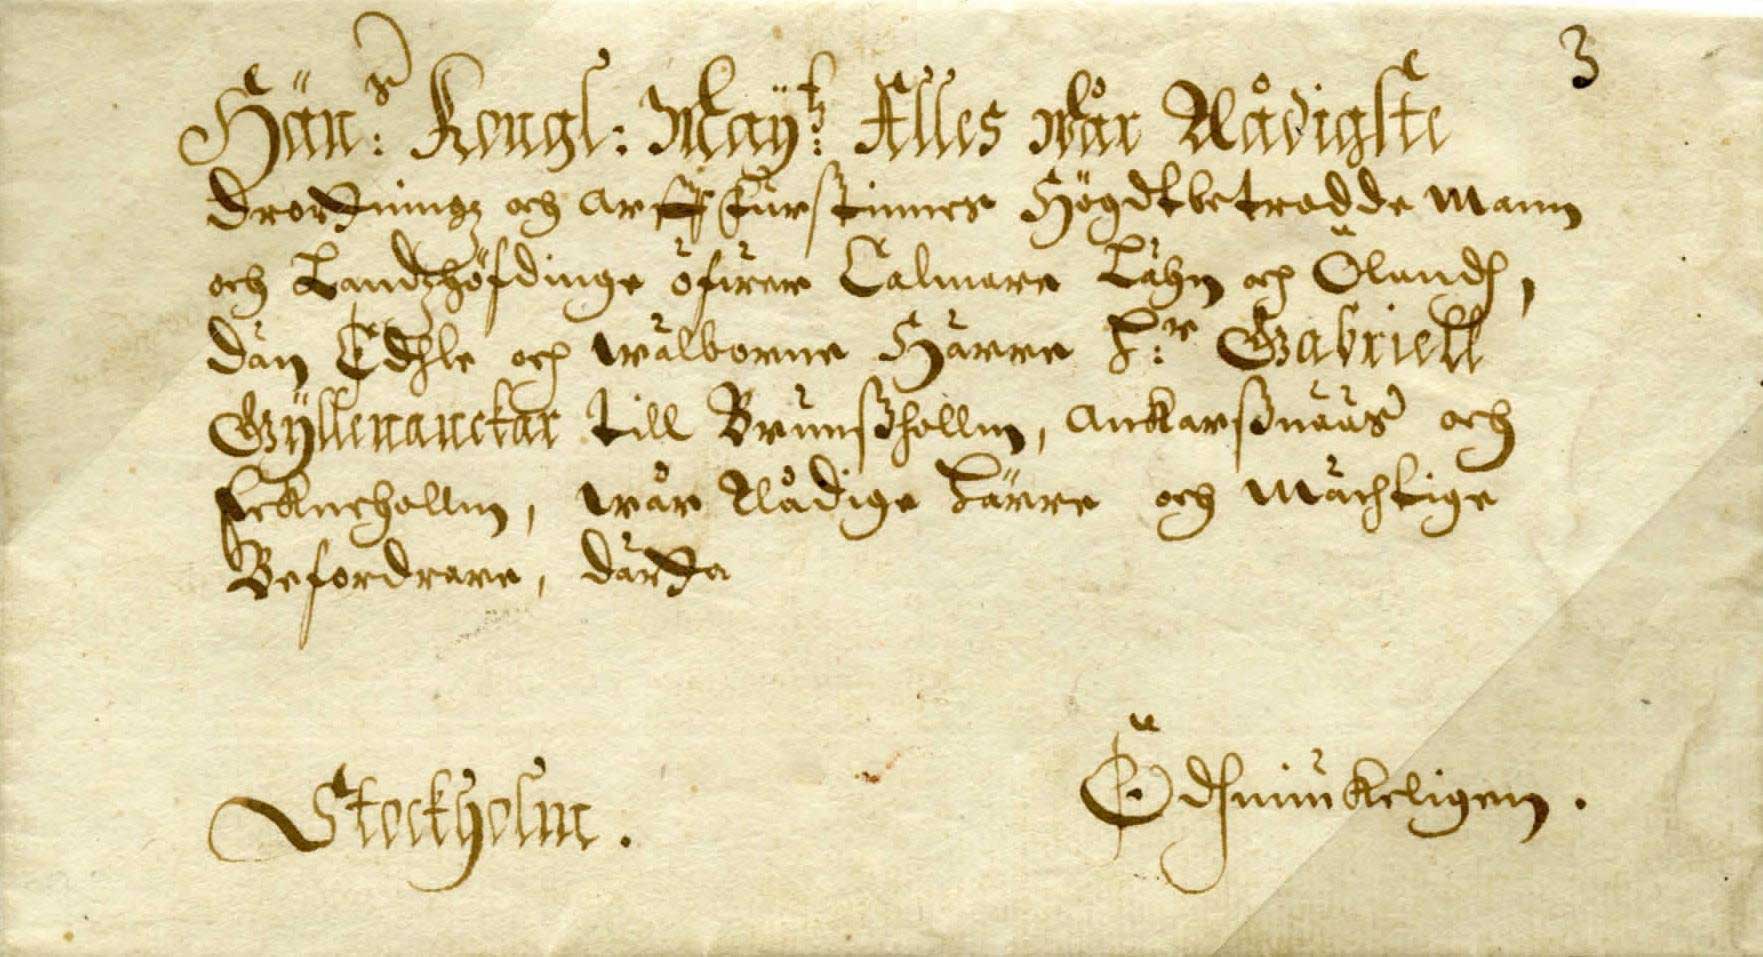 3
Hän:s Kongl: Maÿ:tz Alles wår Nådigste
Drottningz och arffurstinnes Högdtbetrodde Mann
och Landzhöfdinge öfuer Calmare Lähn och Ölandh,
dän Edhle och wälborne Härre H:r Gabriell
Gÿllenanckar till Brunssholm, Ankarssnääs och
wår Nådige Härre och Mächtige
Befordrare,
Stockholm.
Ödhmiukeligen.